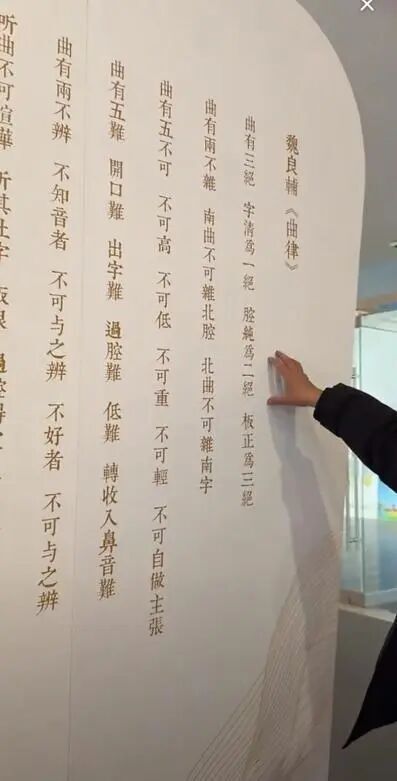 魏良輔《曲律》
曲有三絕 字清爲一絕 腔純爲二絕 板正爲三絕
曲有兩不雜 南曲不可雜北腔 北曲不可雜南字
曲有五不可 不可高 不可低 不可重 不可輕 不可自做主張
曲有五難 開口難 出字難 過腔難 低難 轉收入鼻音難
曲有兩不辨 不知音者 不可与之辨 不好者 不可与之辨
听曲不可喧華 所其吐字 板眼 過腔得